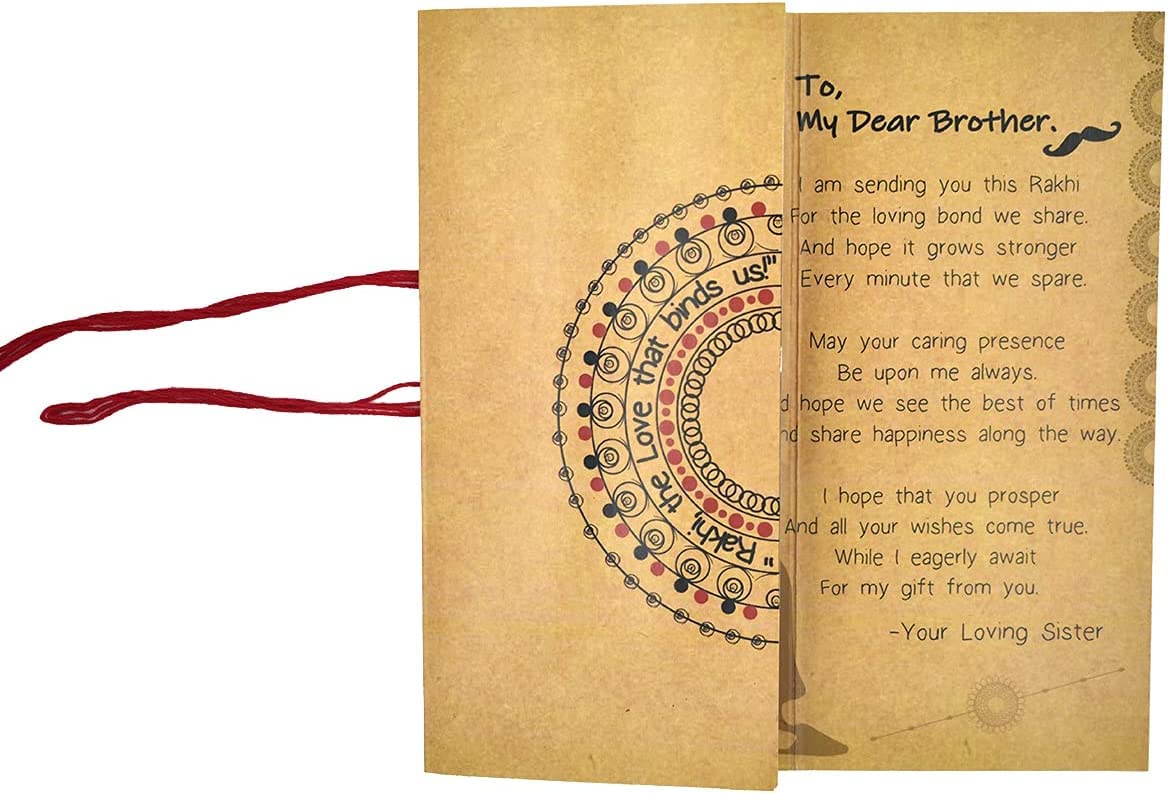 "Rakhi, the Love that binds us!"
To,
My Dear Brother.
I am sending you this Rakhi
For the loving bond we share.
And hope it grows stronger
Every minute that we spare.
May your caring presence
Be upon me always.
hope we see the best of times
share happiness along the way.
I hope that you prosper
And all your wishes come true.
While I eagerly await
For my gift from you.
-Your Loving Sister